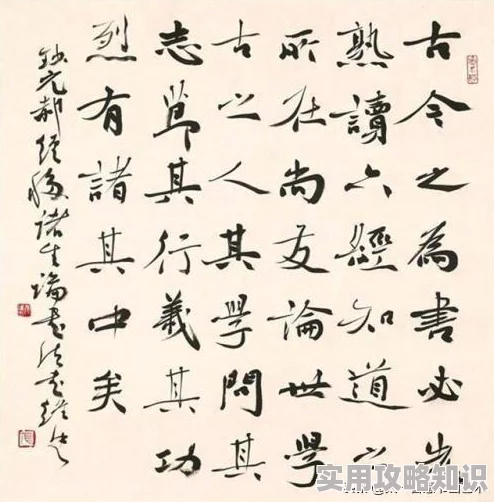 古今之為書必先
熟讀六經知道之
所在尚友論世學
古之人其學問其
志節其行義其功
烈有諸其中矣
鈔元郝經移諸生論書法
实用攻略知识